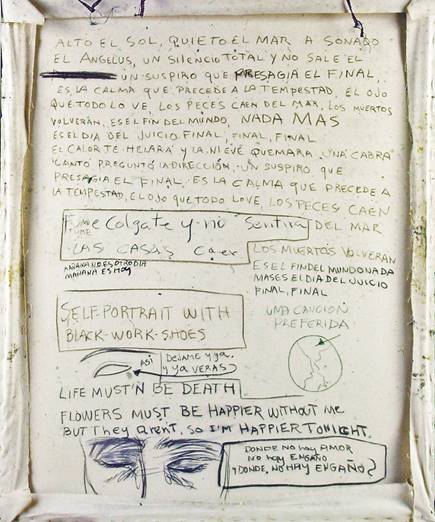 ALTO EL SOL, QUIETO EL MAR A SONADO
EL ANGELUS, UN SILENCIO TOTAL Y NO SALE EL
UN SUSPIRO QUE PRESAGIA EL FINAL,
ES LA CALMA QUE PRECEDE A LA TEMPESTAD, EL OJO
QUE TODO LO VE, LOS PECES CAEN DEL MAR, LOS MUERTOS
VOLVERÁN, ES EL FIN DEL MUNDO, NADA MAS
ES EL DIA DEL JUICIO FINAL, FINAL, FINAL
EL CALOR TE HELARÁ Y LA NIEVE QUEMARA, UNA CABRA
CANTÓ PREGUNTÓ LA DIRECCIÓN, UN SUSPIRO QUE
PRESAGIA EL FINAL. ES LA CALMA QUE PRECEDE A
LA TEMPESTAD, EL OJO QUE TODO LO VE, LOS PECES CAEN
DEL MAR
Colgate y no Sentirá
LAS CASAS Caer
MAÑANA NO ES OTRO DIA
MAÑANA ES HOY
LOS MUERTOS VOLVERAN
ES EL FIN DEL MUNDO NADA
MAS ES EL DIA DEL JUICIO
FINAL, FINAL
SELF-PORTRAIT WITH
BLACK-WORK-SHOES
UNA CANCION
PREFERIDA
ASI
DEJAME Y YA,
Y YA VERAS
LIFE MUST'N BE DEATH
FLOWERS MUST BE HAPPIER WITHOUT ME
BUT They ARENT, SO I'M HAPPIER TONIGHT.
DONDE NO hay AMOR
NO hay ENGAÑO
Y DONDE NO HAY ENGAÑO?